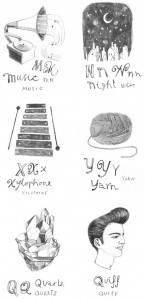 M m
Music
MUSIC
N n N n n
Night NIGHT
X X x
Xylophone
XYLOPHONE
Y Y y
Yarn YARN
Q Q
Quartz
QUARTZ
Quiff
QUIFF